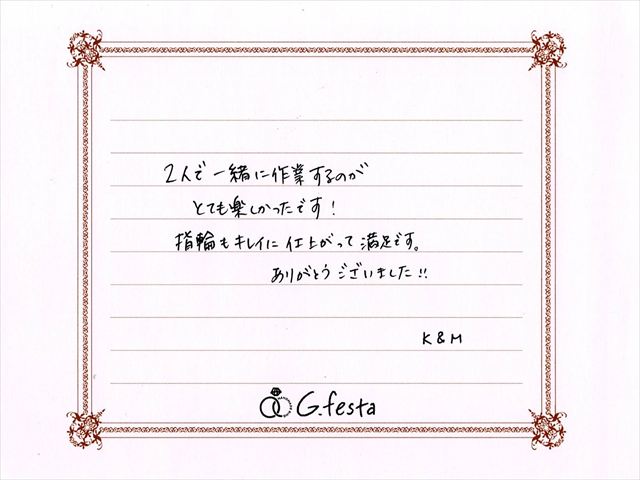 2人で一緒に作業するのが
とても楽しかったです!
指輪もキレイに仕上がって満足です。
ありがとうございました!!
K&M
G.festa